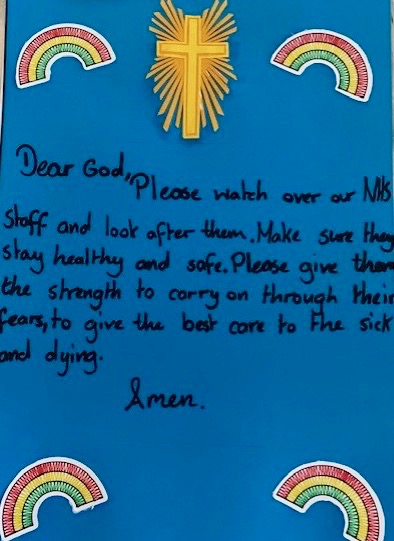 Dear God,
Please watch over our NHS
Staff and look after them. Make sure they
stay healthy and safe. Please give them
the strength to carry on through their
fears, to give the best care to the sick
and dying.
Amen.